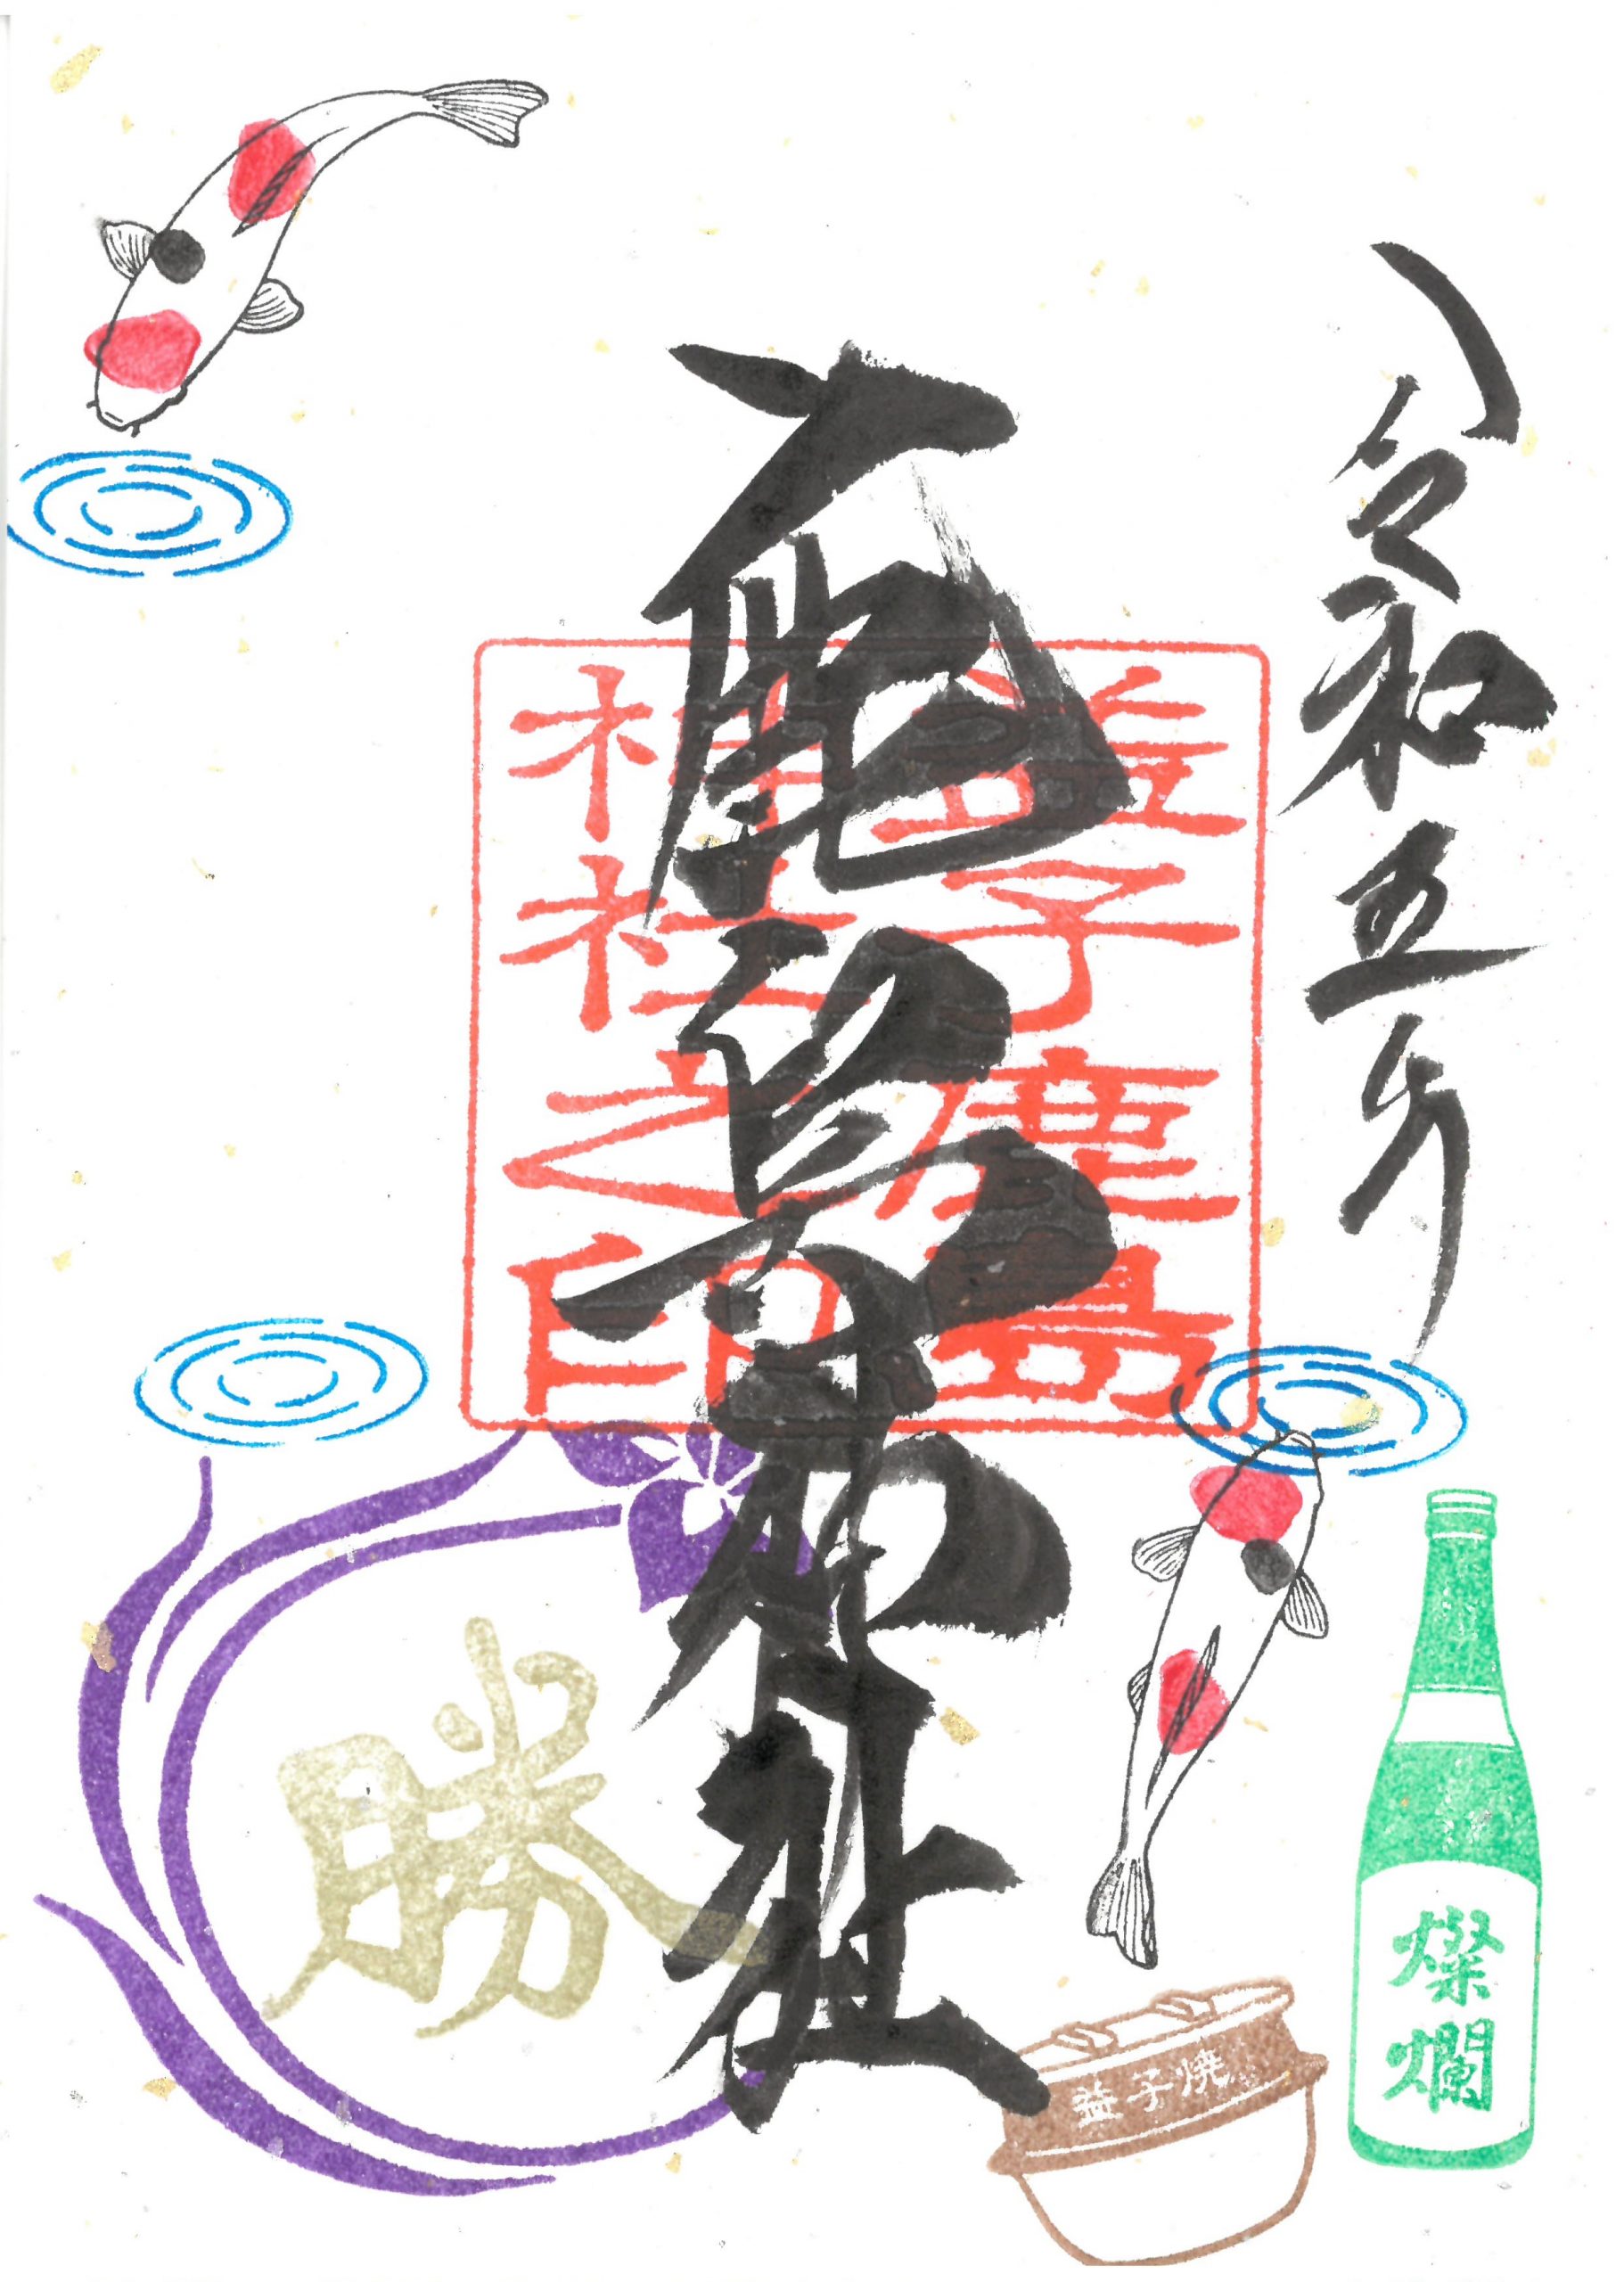 令和五年
鹿島神社
益子鹿島
神社之印
勝
益子焼
燦爛